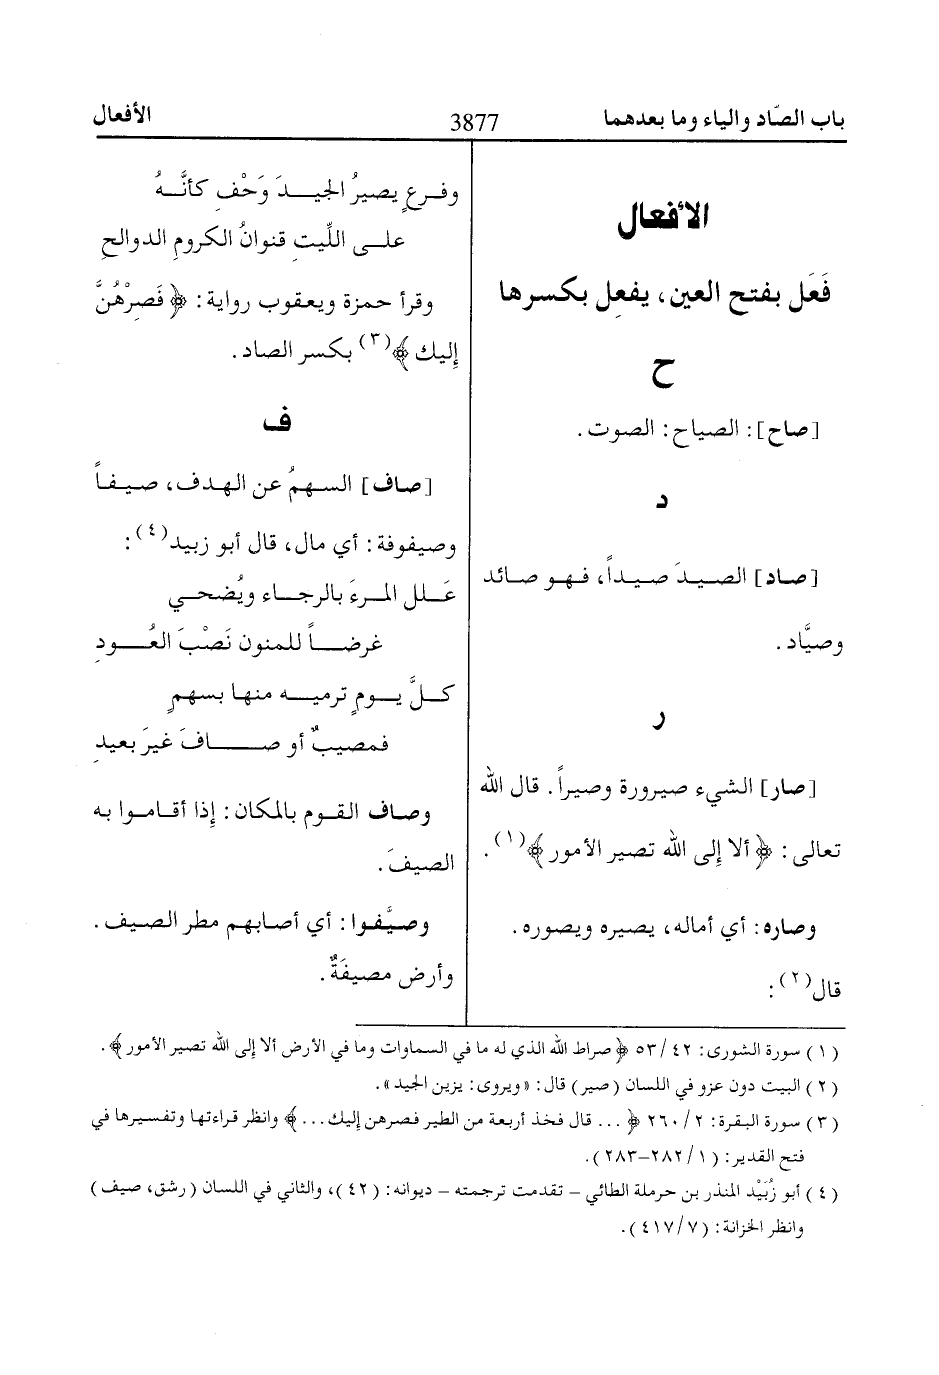 باب الصّاد والياء وما بعدهما
3877
الأفعال
الأفعال
فَعَل بفتح العين، يفعِل بكسرها
ح
[صاح]: الصياح: الصوت.
د
[صاد] الصيدَ صيداً، فهو صائد
وصيَّاد.
ر
[صار] الشيء صيرورة وصيراً. قال الله
تعالى: ﴿ ألا إلى الله تصير الأمور ﴾(١).
وصاره: أي أماله، يصيره ويصوره.
قال(٢):
وفرعٍ يصيرُ الجيدَ وَحْفٍ كأنَّهُ
على اللِّيتِ قنوانُ الكرومِ الدوالحِ
وقرأ حمزة ويعقوب رواية: ﴿ فَصِرْهُنَّ
إليك ﴾(٣) بكسر الصاد.
ف
[صاف] السهمُ عن الهدف، صيفاً
وصيفوفة: أي مال، قال أبو زبيد(٤):
عَلل المرءَ بالرجاء ويُضحي
غرضاً للمنون نَصْبَ العُودِ
كلَّ يومٍ ترميه منها بسهمٍ
فمصيبٌ أو صافَ غيرَ بعيدِ
وصاف القوم بالمكان: إذا أقاموا به
الصيفَ.
وصيَّفوا: أي أصابهم مطر الصيف.
وأرض مصيفَةٌ.
(١) سورة الشورى: ٤٢/ ٥٣ ﴿ صراط الله الذي له ما في السماوات وما في الأرض ألا إلى الله تصير الأمور ﴾.
(٢) البيت دون عزو في اللسان (صير) قال: «ويروى: يزين الجيد».
(٣) سورة البقرة: ٢/ ٢٦٠ ﴿ ... قال فخذ أربعة من الطير فصرهن إليك ... ﴾ وانظر قراءتها وتفسيرها في
فتح القدير: (١/ ٢٨٢-٢٨٣).
(٤) أبو زُبَيْد المنذر بن حرملة الطائي - تقدمت ترجمته - ديوانه: (٤٢)، والثاني في اللسان (رشق، صيف)
وانظر الخزانة: (٧/ ٤١٧).